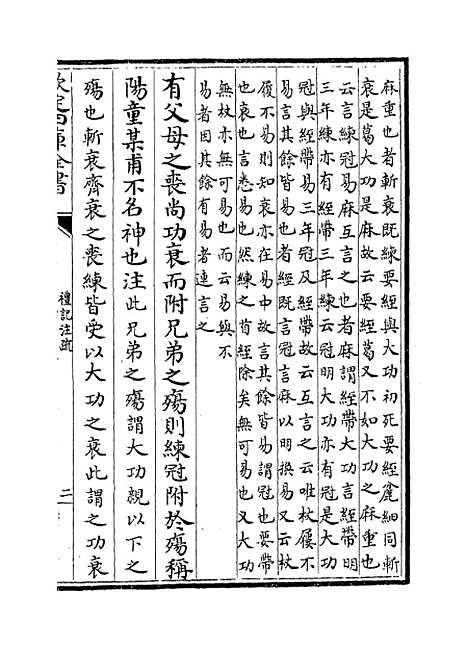 麻重也者斬衰既練要絰與大功初死要絰麄細同斬
衰是葛大功是麻故云要絰葛又不如大功之麻重也
云言練冠易麻互言之也者麻謂絰帶大功言絰帶明
三年練亦有絰帶三年練云冠明大功亦有冠是大功
冠與絰帶易三年冠及絰帶故云互言之云唯杖屨不
易言其餘皆易也者絰既言冠言麻以明換易又云杖
屨不易則知衰亦在易中故言其餘皆易謂冠也要帶
也衰也言悉易也然練之首絰除矣無可易也又大功
無杖亦無可易也而云易與不
易者因其餘有易者連言之
有父母之喪尚功衰而附兄弟之殤則練冠附於殤稱
陽童某甫不名神也注此兄弟之殤謂大功親以下之
殤也斬衰齊衰之喪練皆受以大功之衰此謂之功衰
欽定四庫全書
禮記注疏
二